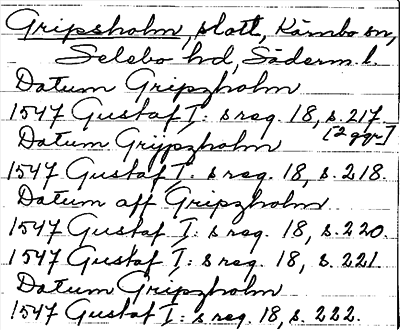 Gripsholm, slott, Kärnbo sn,
Selebo hd, Söderm. l.
Datum Gripzholm
1547 Gustaf I: s reg. 18, s. 217.
[2 ggr]
Datum Grijpzholm
1547 Gustaf I: s reg. 18, s. 218.
Datum aff Gripzholm
1547 Gustaf I: s reg. 18, s. 220.
1547 Gustaf I: s reg. 18, s. 221
Datum Gripzholm
1547 Gustaf I: s reg. 18, s. 222.